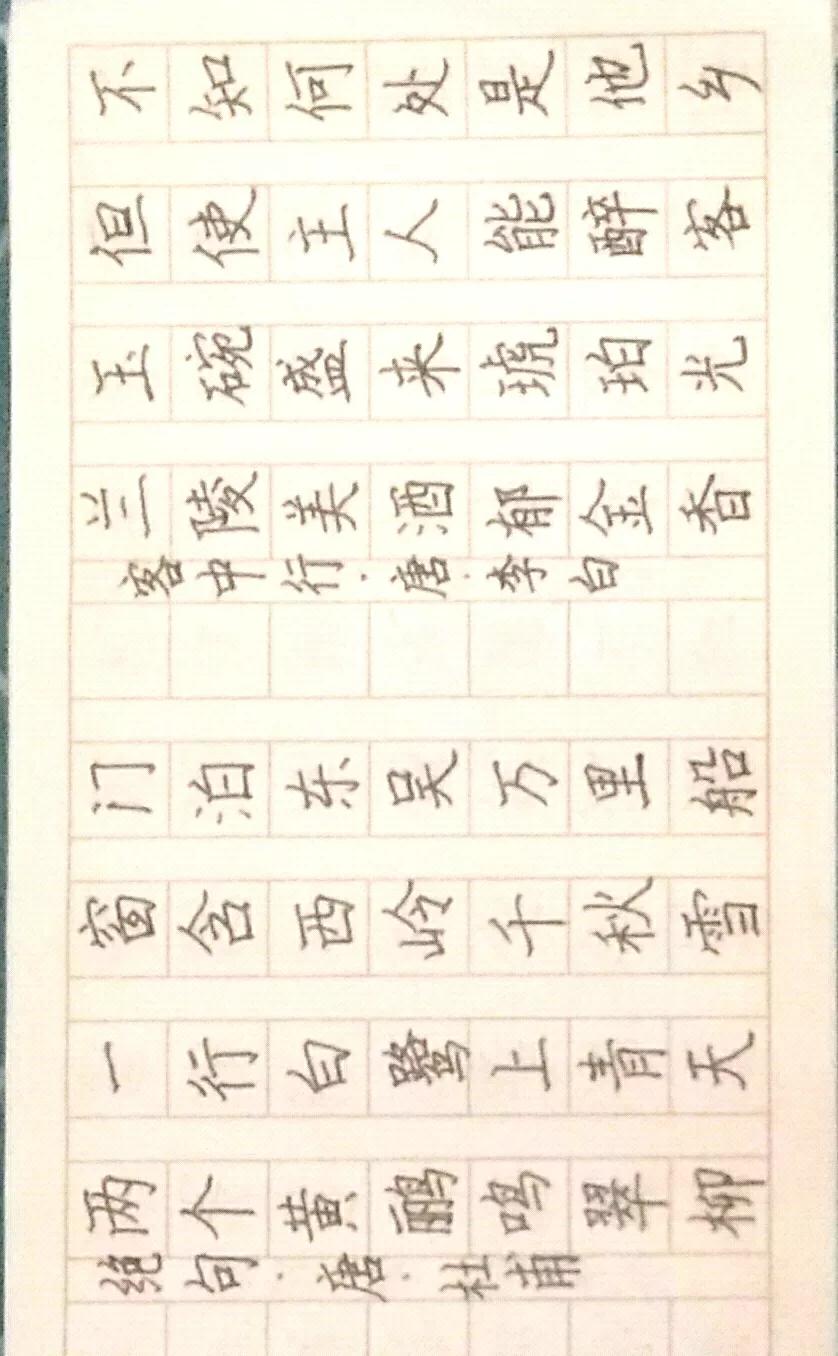 绝句·唐·杜甫
两个黄鹂鸣翠柳
一行白鹭上青天
窗含西岭千秋雪
门泊东吴万里船
客中行·唐·李白
兰陵美酒郁金香
玉碗盛来琥珀光
但使主人能醉客
不知何处是他乡